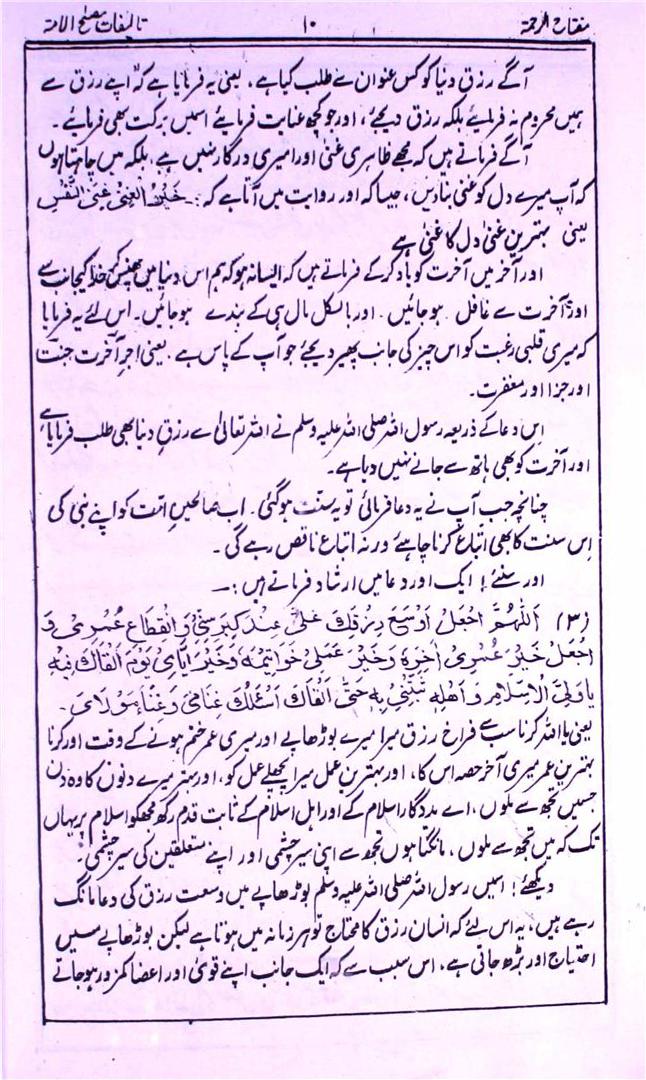 مفتاح الرحمۃ ۱۰ تالیفات مصلح الامۃ
آگے رزق دنیا کو کس عنوان سے طلب کیا ہے، یعنی یہ فرمایا ہے کہ اپنے رزق سے
ہمیں محروم نہ فرمائیے بلکہ رزق دیجئے، اور جو کچھ عنایت فرمائیے اسمیں برکت بھی فرمائیے۔
آگے فرماتے ہیں کہ مجھے ظاہری غنیٰ اور امیری درکار نہیں ہے بلکہ میں چاہتا ہوں
کہ آپ میرے دل کو غنی بنا دیں، جیسا کہ اور روایت میں آتا ہے کہ :۔ خَيْرُ الْغِنٰى غِنَى النَّفْسِ
یعنی بہترین غنیٰ دل کا غنیٰ ہے
اور آخر میں آخرت کو یاد کرکے فرماتے ہیں کہ ایسا نہ ہو کہ ہم اس دنیا میں پھنس کر خدا کیجانب سے
اور آخرت سے غافل ہوجائیں۔ اور بالکل مال ہی کے بندے ہوجائیں۔ اس لئے یہ فرمایا
کہ میری قلبی رغبت کو اس چیز کی جانب پھیر دیجئے جو آپ کے پاس ہے۔ یعنی اجرِ آخرت جنت
اور جزا اور مغفرت۔
اِس دعا کے ذریعہ رسول اللہ صلی اللہ علیہ وسلم نے اللہ تعالیٰ سے رزقِ دنیا بھی طلب فرمایا ہے
اور آخرت کو بھی ہاتھ سے جانے نہیں دیا ہے۔
چنانچہ جب آپ نے یہ دعا فرمائی تو یہ سنت ہوگئی۔ اب صالحینِ امت کو اپنے نبی کی
اِس سنت کا بھی اتباع کرنا چاہئے ورنہ اتباع ناقص رہے گی۔
اور سنئے! ایک اور دعا میں ارشاد فرماتے ہیں :۔
(۳) اَللّٰهُمَّ اجْعَلْ اَوْسَعَ رِزْقِكَ عَلَىَّ عِنْدَ كِبَرِ سِنِّىْ وَانْقِطَاعِ عُمُرِىْ وَ
اجْعَلْ خَيْرَ عُمُرِىْ اٰخِرَهٗ وَخَيْرَ عَمَلِىْ خَوَاتِيْمَهٗ وَخَيْرَ اَيَّامِىْ يَوْمَ اَلْقَاكَ فِيْهِ
يَا وَلِىَّ الْاِسْلَامِ وَاَهْلِهٖ ثَبِّتْنِىْ بِهٖ حَتّٰى اَلْقَاكَ اَسْئَلُكَ غِنَاىَ وَغِنَاءَ مَوْلَاىَ۔
یعنی یا اللہ کرنا سب سے فراخ رزق میرا میرے بوڑھاپے اور میری عمر ختم ہونے کے وقت اور کرنا
بہترین عمر میری آخر حصہ اس کا، اور بہترین عمل میرا پچھلے عمل کو، اور بہتر میرے دنوں کا وہ دن
جسمیں تجھ سے ملوں، اے مددگار اسلام کے اور اہل اسلام کے ثابت قدم رکھ مجھکو اسلام پر یہاں
تک کہ میں تجھ سے ملوں، مانگتا ہوں تجھ سے اپنی سیر چشمی اور اپنے متعلقین کی سیر چشمی۔
دیکھئے! اسمیں رسول اللہ صلی اللہ علیہ وسلم بوڑھاپے میں وسعت رزق کی دعا مانگ
رہے ہیں، یہ اس لئے کہ انسان رزق کا محتاج تو ہر زمانہ میں ہوتا ہے لیکن بوڑھاپے میں
احتیاج اور بڑھ جاتی ہے، اس سبب سے کہ ایک جانب اپنے قویٰ اور اعضا کمزور ہوجاتے